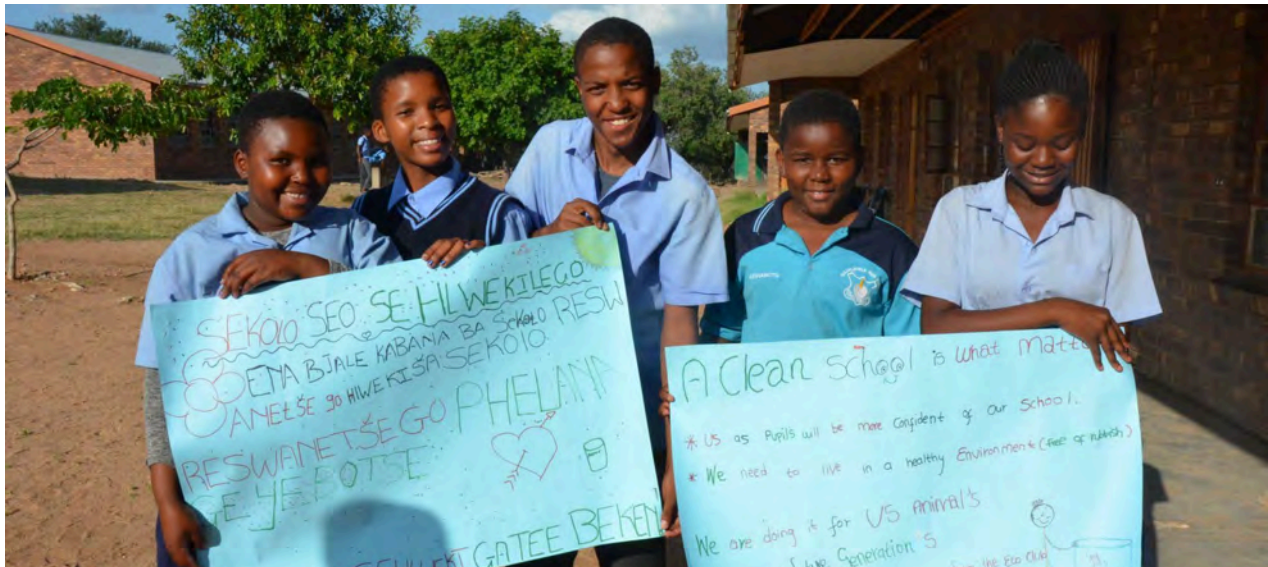 SEKOLO SEO SE HLWEKILEGO
ENA BJALE KABANA BA SEKOLO RESW
ANETŠE go HLWEKIŠA SEKOLO
RESWANETŠE GO PHELANA
GATEE BEKENI
A Clean School is what matte
* US as Pupils will be more Confident of our School.
* We need to live in a healthy Environment (free of rubbish)
We are doing it for US Animal's
Generation's
the Eco Club